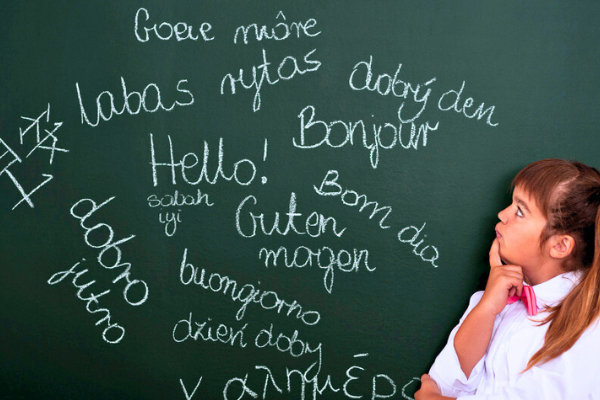 Goeie môre
labas rytas
dobrý den
Bonjour
Hello!
sabah
iyi
Guten
morgen
Bom dia
dobro
jutro
buongiorno
dzień dobry